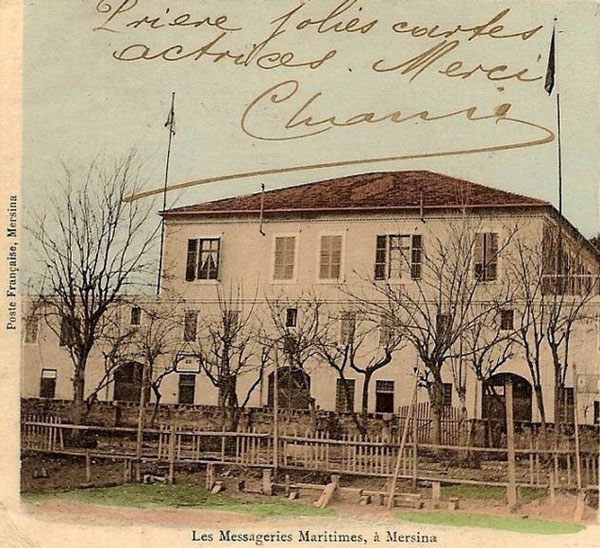 Prière jolies cartes
actrices. Merci
Poste Française, Mersina
Les Messageries Maritimes, à Mersina